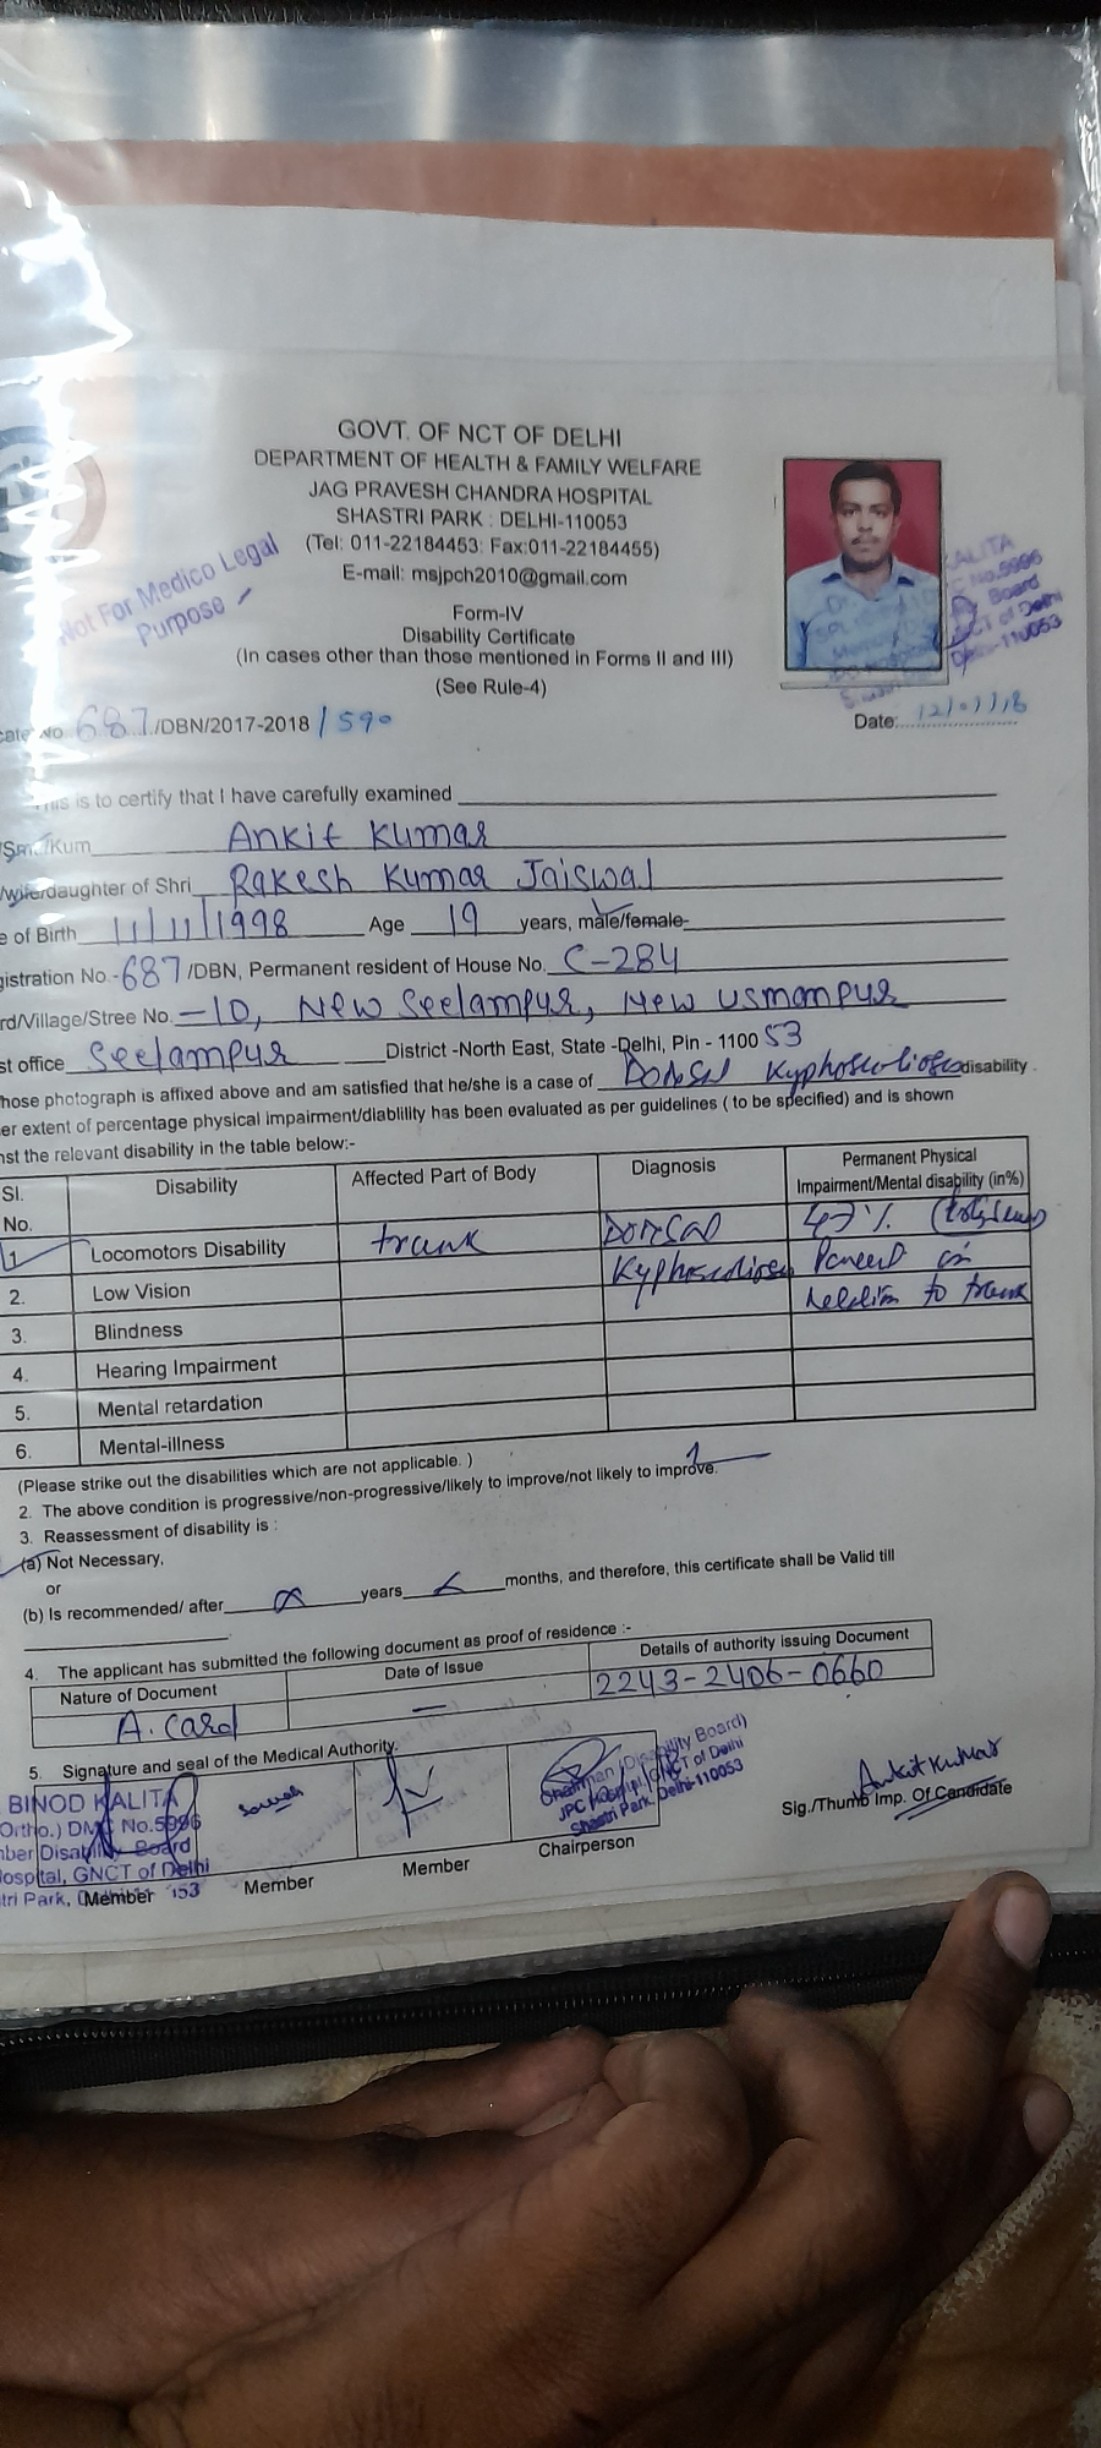 GOVT. OF NCT OF DELHI
DEPARTMENT OF HEALTH & FAMILY WELFARE
JAG PRAVESH CHANDRA HOSPITAL
SHASTRI PARK : DELHI-110053
(Tel: 011-22184453: Fax:011-22184455)
E-mail: msjpch2010@gmail.com
Not For Medico Legal
Purpose
Form-IV
Disability Certificate
(In cases other than those mentioned in Forms II and III)
(See Rule-4)
KALITA
No.5996
Board
GNCT of Delhi
110053
No. 687/DBN/2017-2018/590
Date:
This is to certify that I have carefully examined
/Sm./Kum Ankit Kumar
/wife/daughter of Shri Rakesh Kumar Jaiswal
e of Birth 11/11/1998 Age 19 years, male/female
gistration No.-687/DBN, Permanent resident of House No. C-284
rd/Village/Stree No. -10, New Seelampur, New Usmanpur
st office Seelampur District -North East, State -Delhi, Pin - 110053
hose photograph is affixed above and am satisfied that he/she is a case of Dorsal Kyphoscoliosis disability.
er extent of percentage physical impairment/diablility has been evaluated as per guidelines ( to be specified) and is shown
nst the relevant disability in the table below:-
Sl. No. Disability Affected Part of Body Diagnosis Permanent Physical Impairment/Mental disability (in%)
1 Locomotors Disability trunk Dorsal Kyphoscoliosis 47% Percent in relation to trunk
2. Low Vision
3. Blindness
4. Hearing Impairment
5. Mental retardation
6. Mental-illness
(Please strike out the disabilities which are not applicable. )
2. The above condition is progressive/non-progressive/likely to improve/not likely to improve.
3. Reassessment of disability is :
(a) Not Necessary,
or
(b) Is recommended/ after years months, and therefore, this certificate shall be Valid till
4. The applicant has submitted the following document as proof of residence :-
Nature of Document Date of Issue Details of authority issuing Document
A. Card — 2243-2406-0660
5. Signature and seal of the Medical Authority.
BINOD KALITA
Ortho.) DMC No.5996
ber Disability Board
ospital, GNCT of Delhi
tri Park,
Member
Member
Member
Chairman (Disability Board)
JPC Hospital, GNCT of Delhi
Shastri Park, Delhi-110053
Chairperson
Ankit Kumar
Sig./Thumb Imp. Of Candidate